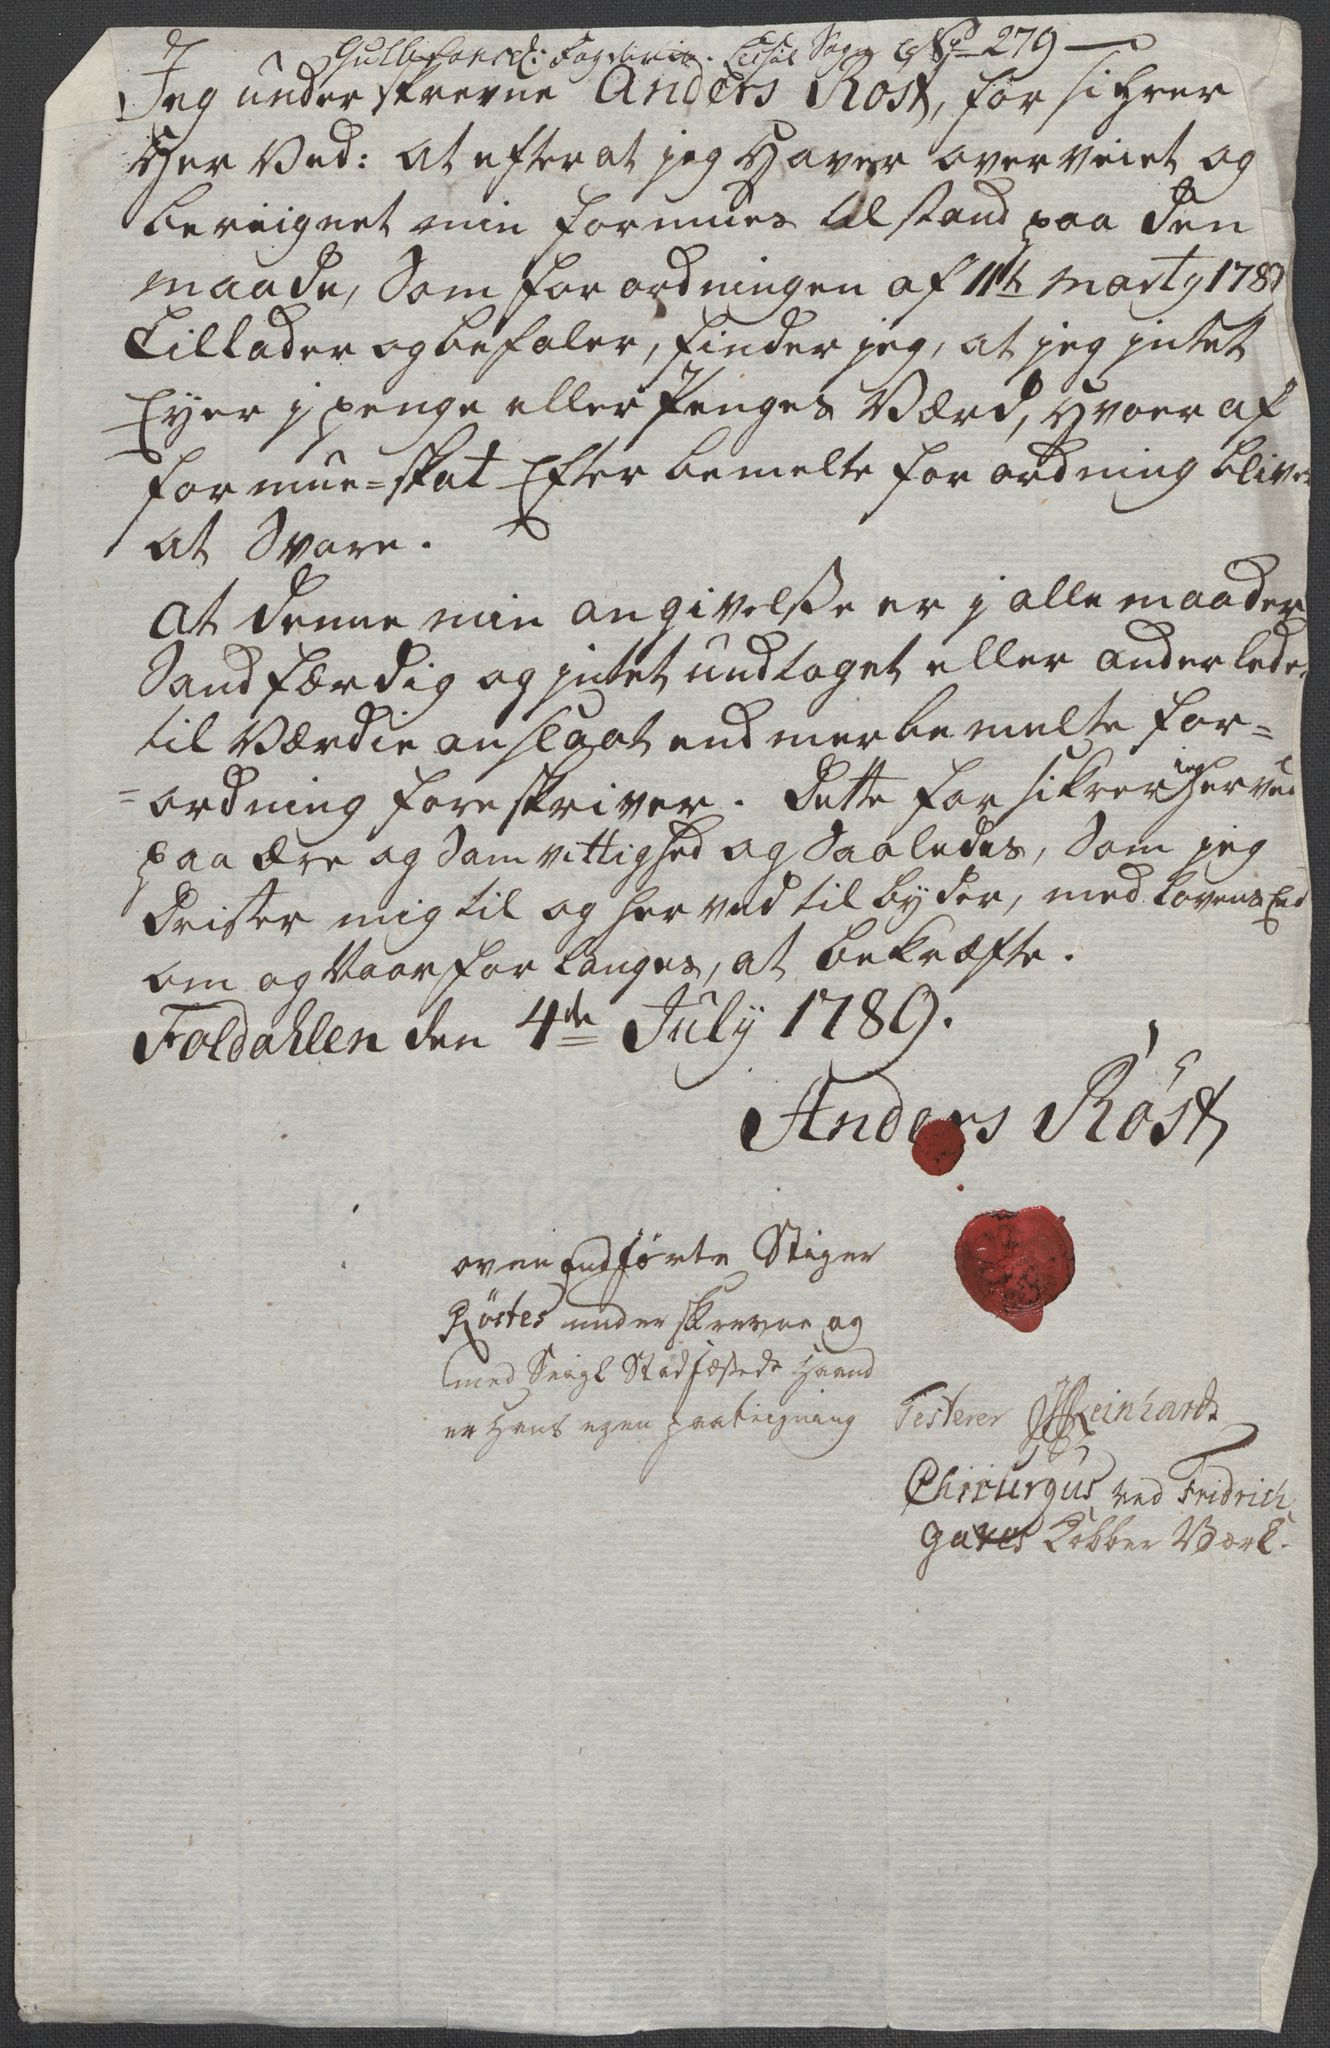 Gulbrandsd: Fogderie. Lessøe Sogn No 279
Jeg underskrevne Anders Røst, for sikrer
Her Ved: at efter at jeg Haver over veiet og
bereignet min formues til stand paa den
maade, Som for ordningen af 11th Marty 1789
tillader og befaler, finder jeg, at jeg jntet
Eyer j penge eller Penges Værd, Hvoer af
formue=skat Efter bemelte for ordning bliver
at Svare.
at denne min angivelsse er j alle maader
Sandfærdig og jntet undtaget eller anderledes
til Værdie anslaat end merbemelte for=
=ordning fore skriver. dette for sikrer jeg Herved
paa ære og Samvittighed og Saaledes, Som jeg
drister mig til og her ved til byder, med Lovens Eed
om og naar forlanges, at bekræfte.
Foldahlen den 4de July 1789.
Anders Røst
oven andførte Stiger
Røstes under skrevne og
med Seigl Stadfæstede Haand
er Hans egen paategning
Testerer Reinhardt
Chirurgus ved Fridrich
Gaves Kobber Værk.